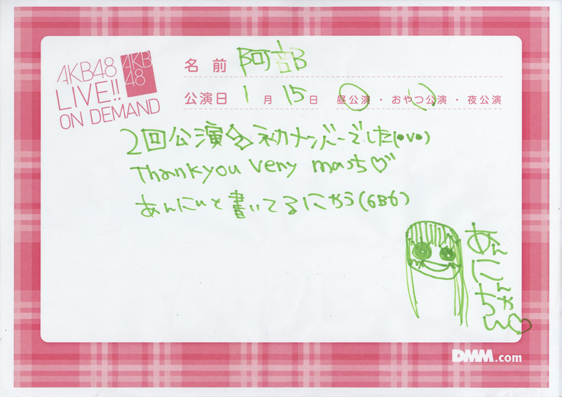 AKB48
LIVE!!
ON DEMAND
AKB
48
名前 阿部
公演日 1月15日 昼公演・おやつ公演・夜公演
2回公演
ナンバーでした(•v•)
Thankyou veny mast♡
あんにぃと書いてるにゃう(6B6)
あんにんちゃん♡
DMM.com